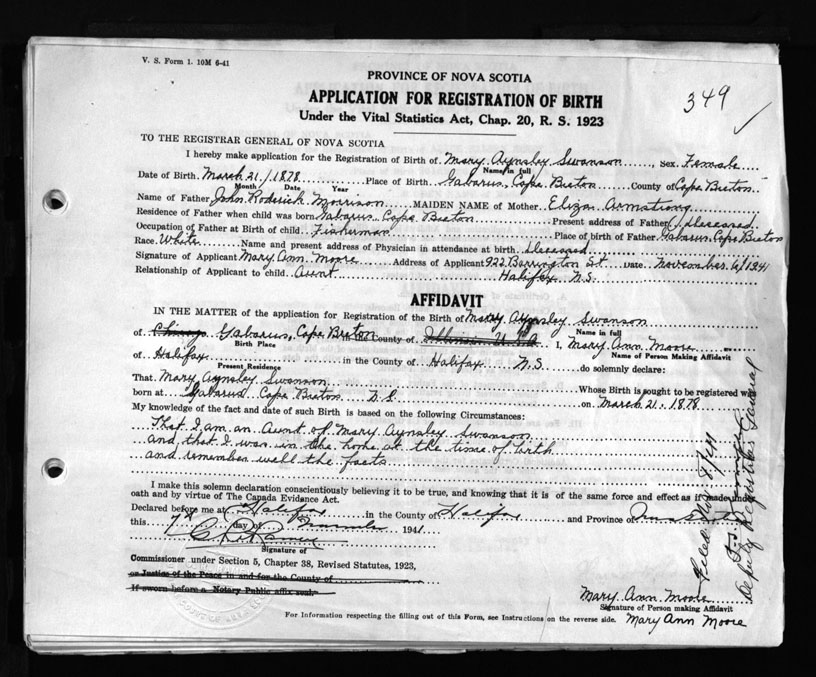 V. S. Form 1. 10M 6-41
349
PROVINCE OF NOVA SCOTIA
APPLICATION FOR REGISTRATION OF BIRTH
Under the Vital Statistics Act, Chap. 20, R. S. 1923
TO THE REGISTRAR GENERAL OF NOVA SCOTIA
I hereby make application for the Registration of Birth of Mary Aynsley Swanson, Sex Female
Name in full
Date of Birth. March 21/1878 Place of Birth. Gabarus, Cape Breton County of Cape Breton
Month Date Year
Name of Father John Roderick Morrison MAIDEN NAME of Mother Eliza Armstrong
Residence of Father when child was born Gabarus Cape Breton Present address of Father (deceased)
Occupation of Father at Birth of child Fisherman Place of birth of Father Gabarus, Cape Breton
Race. White Name and present address of Physician in attendance at birth Deceased
Signature of Applicant Mary Ann Moore Address of Applicant 922 Barrington St. Date November 6/1941
Relationship of Applicant to child Aunt Halifax N.S.
AFFIDAVIT
IN THE MATTER of the application for Registration of the Birth of Mary Aynsley Swanson
Name in full
of Gabarus, Cape Breton in the County of I, Mary Ann Moore
Birth Place Name of Person Making Affidavit
of Halifax in the County of Halifax N.S. do solemnly declare:
Present Residence
That Mary Aynsley Swanson Whose Birth is sought to be registered was
born at Gabarus Cape Breton N.S. on March 21, 1878
My knowledge of the fact and date of such Birth is based on the following Circumstances:
That I am an Aunt of Mary Aynsley Swanson
and that I was in the home at the time of birth
and remember well the facts
I make this solemn declaration conscientiously believing it to be true, and knowing that it is of the same force and effect as if made under
oath and by virtue of The Canada Evidence Act.
Declared before me at Halifax in the County of Halifax and Province of Nova Scotia
this 7th day of November 1941
Signature of
Commissioner under Section 5, Chapter 38, Revised Statutes, 1923,
or Justice of the Peace in and for the County of
If sworn before a Notary Public affix seal.
Mary Ann Moore
Signature of Person making Affidavit
For Information respecting the filling out of this Form, see Instructions on the reverse side. Mary Ann Moore
Filed
Deputy Registrar General